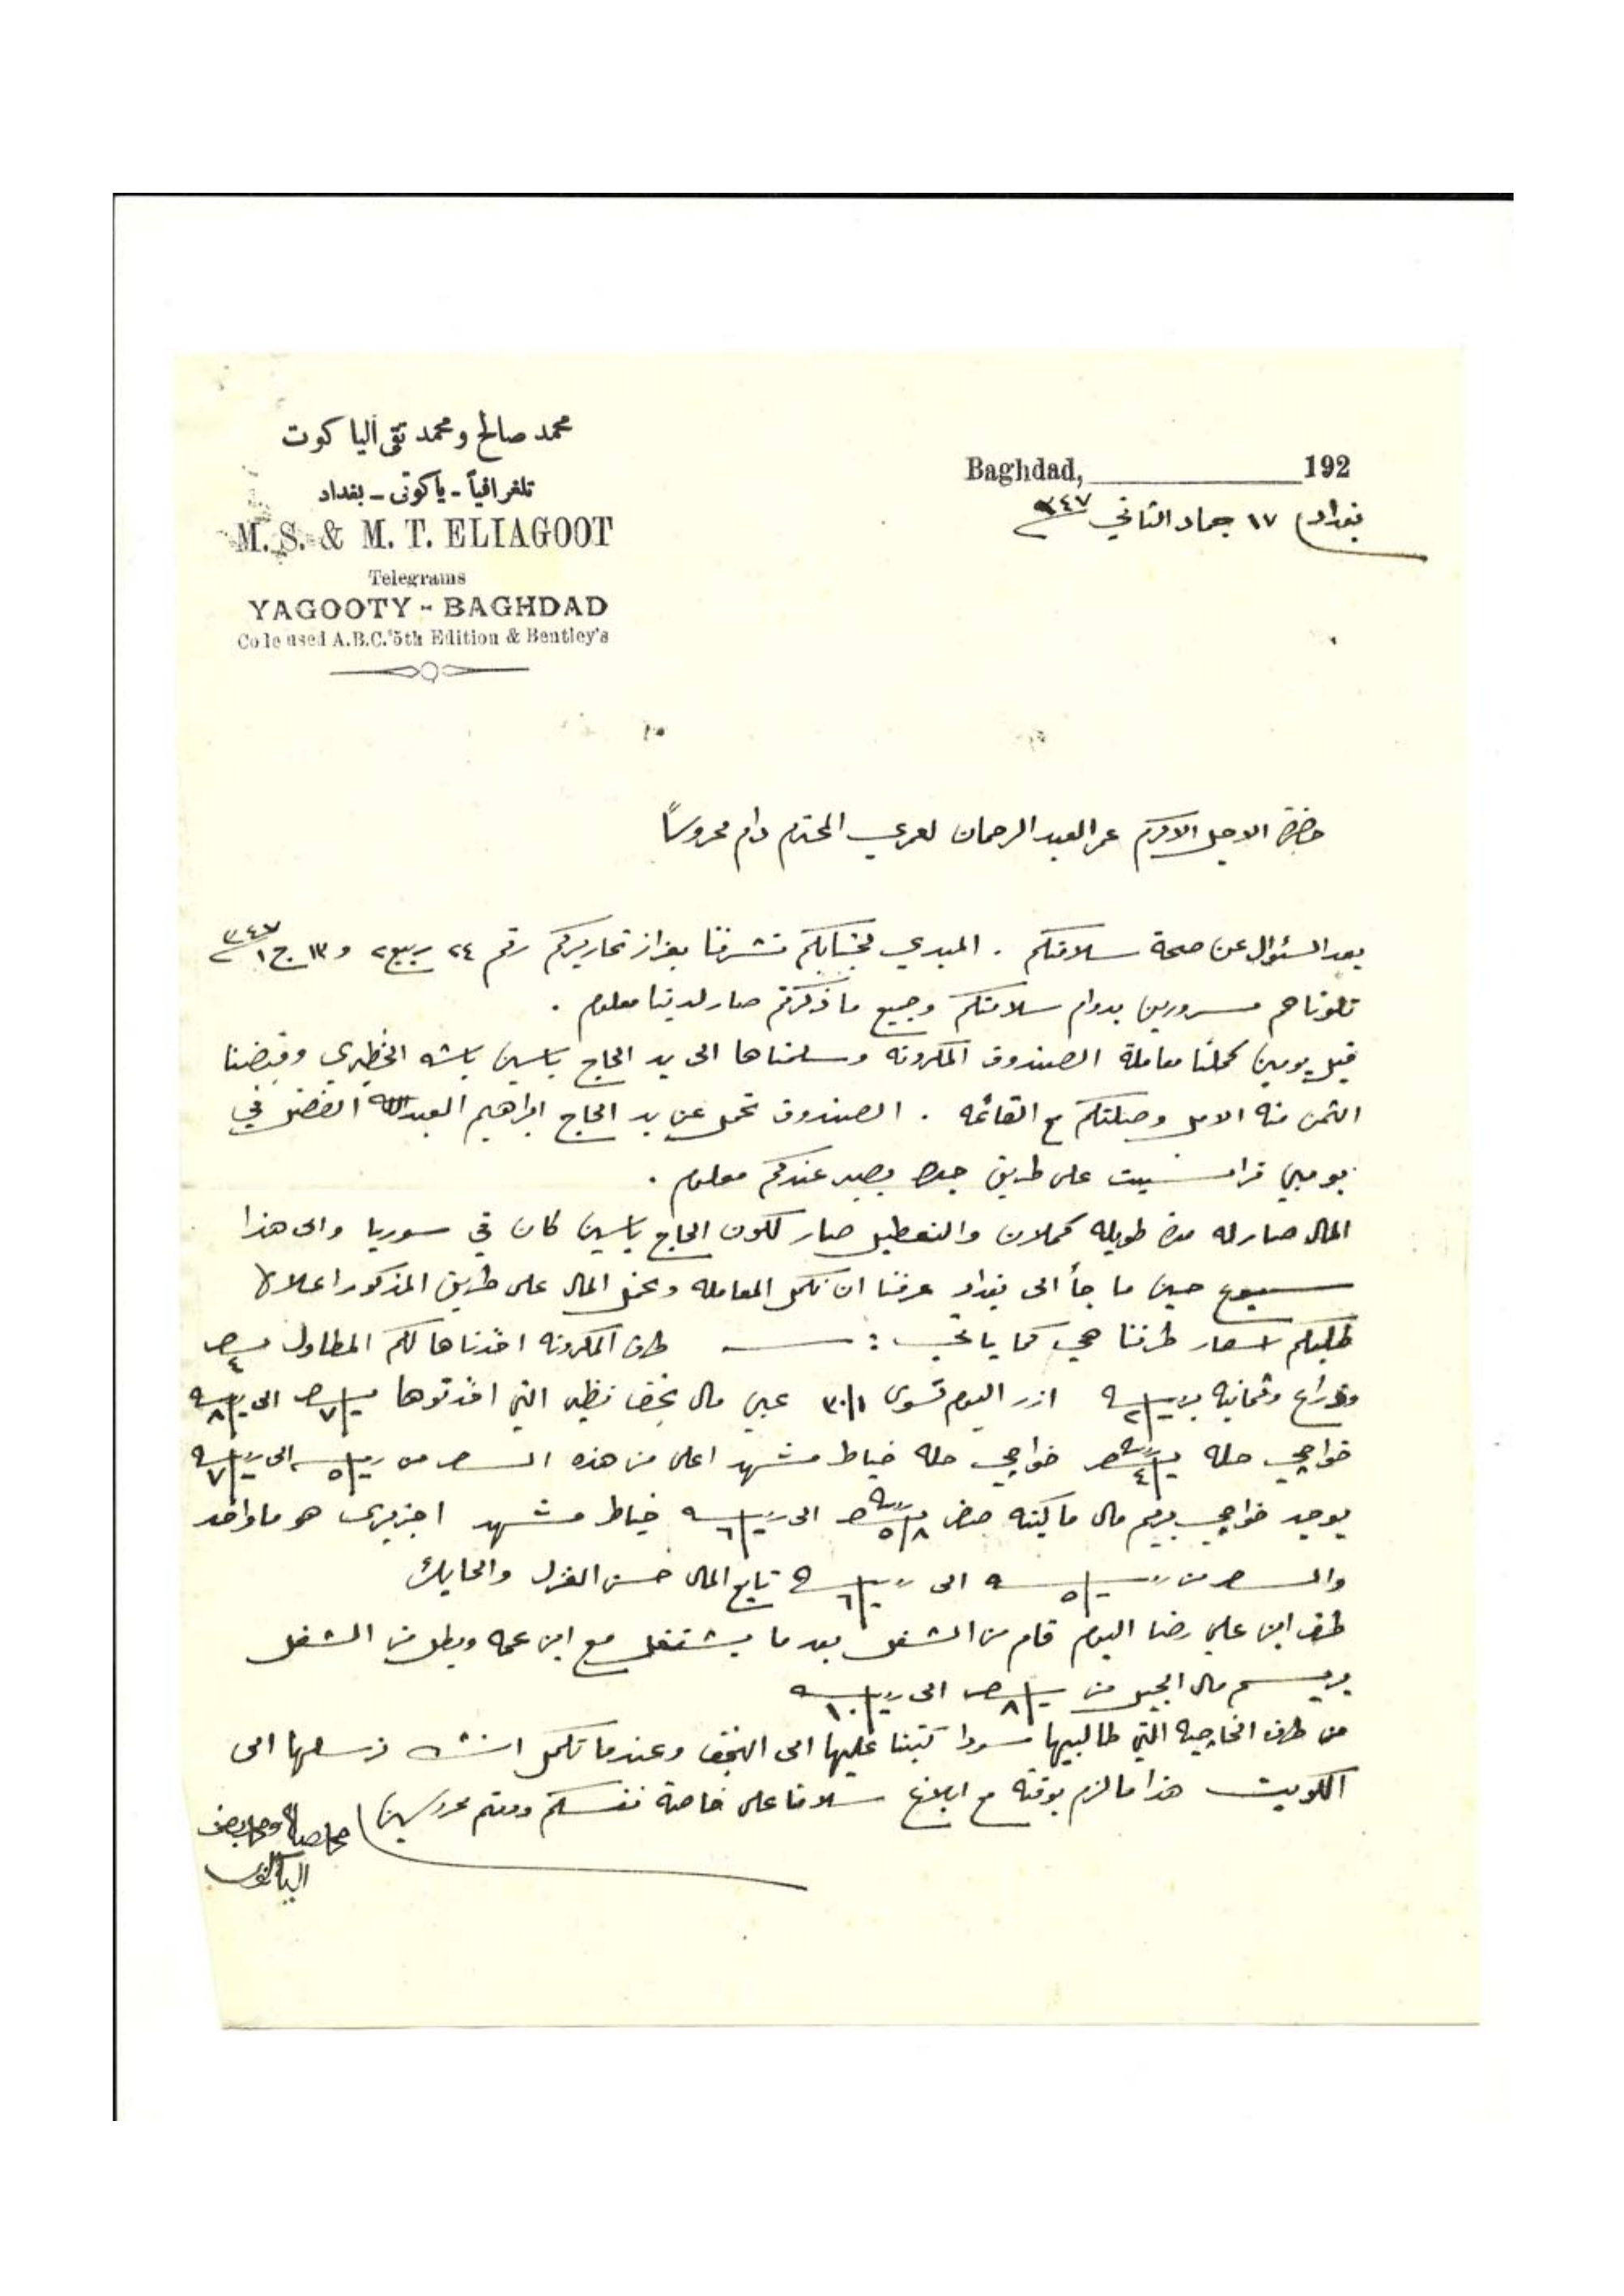 محمد صالح و محمد تقى ألياكوت
تلغرافياً - ياكوتى - بغداد
M. S. & M. T. ELIAGOOT
Telegrams
YAGOOTY - BAGHDAD
Code used A.B.C. 5th Edition & Bentley's
Baghdad, 192
بغداد ١٧ جماد الثاني ٣٤٧
حضرة الاجل الاكرم عمر العبد الرحمان لعمري المحترم دام محروساً
بعد السئوال عن صحة سلامتكم . المبدي لجنابكم تشرفنا بعزاز تحاريركم رقم ٢٤ ربيع٢ و ١٣ ج١ ٣٤٧
تلوناهم مسرورين بدوام سلامتكم وجميع ما ذكرتم صار لدينا معلوم .
قبل يومين كملنا معاملة الصندوق المكرونه وسلمناها الى يد الحاج ياسين باشه الخظيري وقبضنا
الثمن منه الامل وصلتكم مع القائمه . الصندوق تحمل عن يد الحاج ابراهيم العبدالله الفضل في
بومبي ترانسيت على طريق جده يصير عندكم معلوم .
المال صار له مده طويله كملان والتعطيل صار لكون الحاج ياسين كان في سوريا والى هذا
سبوع حين ما جأ الى بغداد عرفنا ان نكمل المعامله ونحمل المال على طريق المذكور اعلاه
طلبكم اسعار طرفنا هي كما ياتي : طاق المكرونه اخذناها لكم المطاول ٤
وذراع وثمانيه ٢ ازر اليوم تسوى ٣٠/١ عبي مال نجف نظير التي اخذتوها ٧ الى ٨
خواجي حله ٤ خواجي حله خياط مشهد اعلى من هذه السعر من ٥ الى ٧
يوجد خواجي بريم مال ماكينه ٥/٨ الى ٦ خياط مشهد هو ما واحد
والسعر من ٥ الى ٦ تابع المال حسن الغزل والحايك
طرف ابن علي رضا اليوم قام من الشغل بعد ما يشتغل مع ابن عمه وبطل من الشغل
بريسم مال الجبل من ٨ الى ١٠
من طرف الخاجيه التي طالبيها سودا كتبنا عليها الى النجف وعندما تكمل انشاء نرسلها الى
الكويت هذا ما لزم بوقته مع ابلاغ سلامنا على خاصة نفسكم ودمتم محروسين